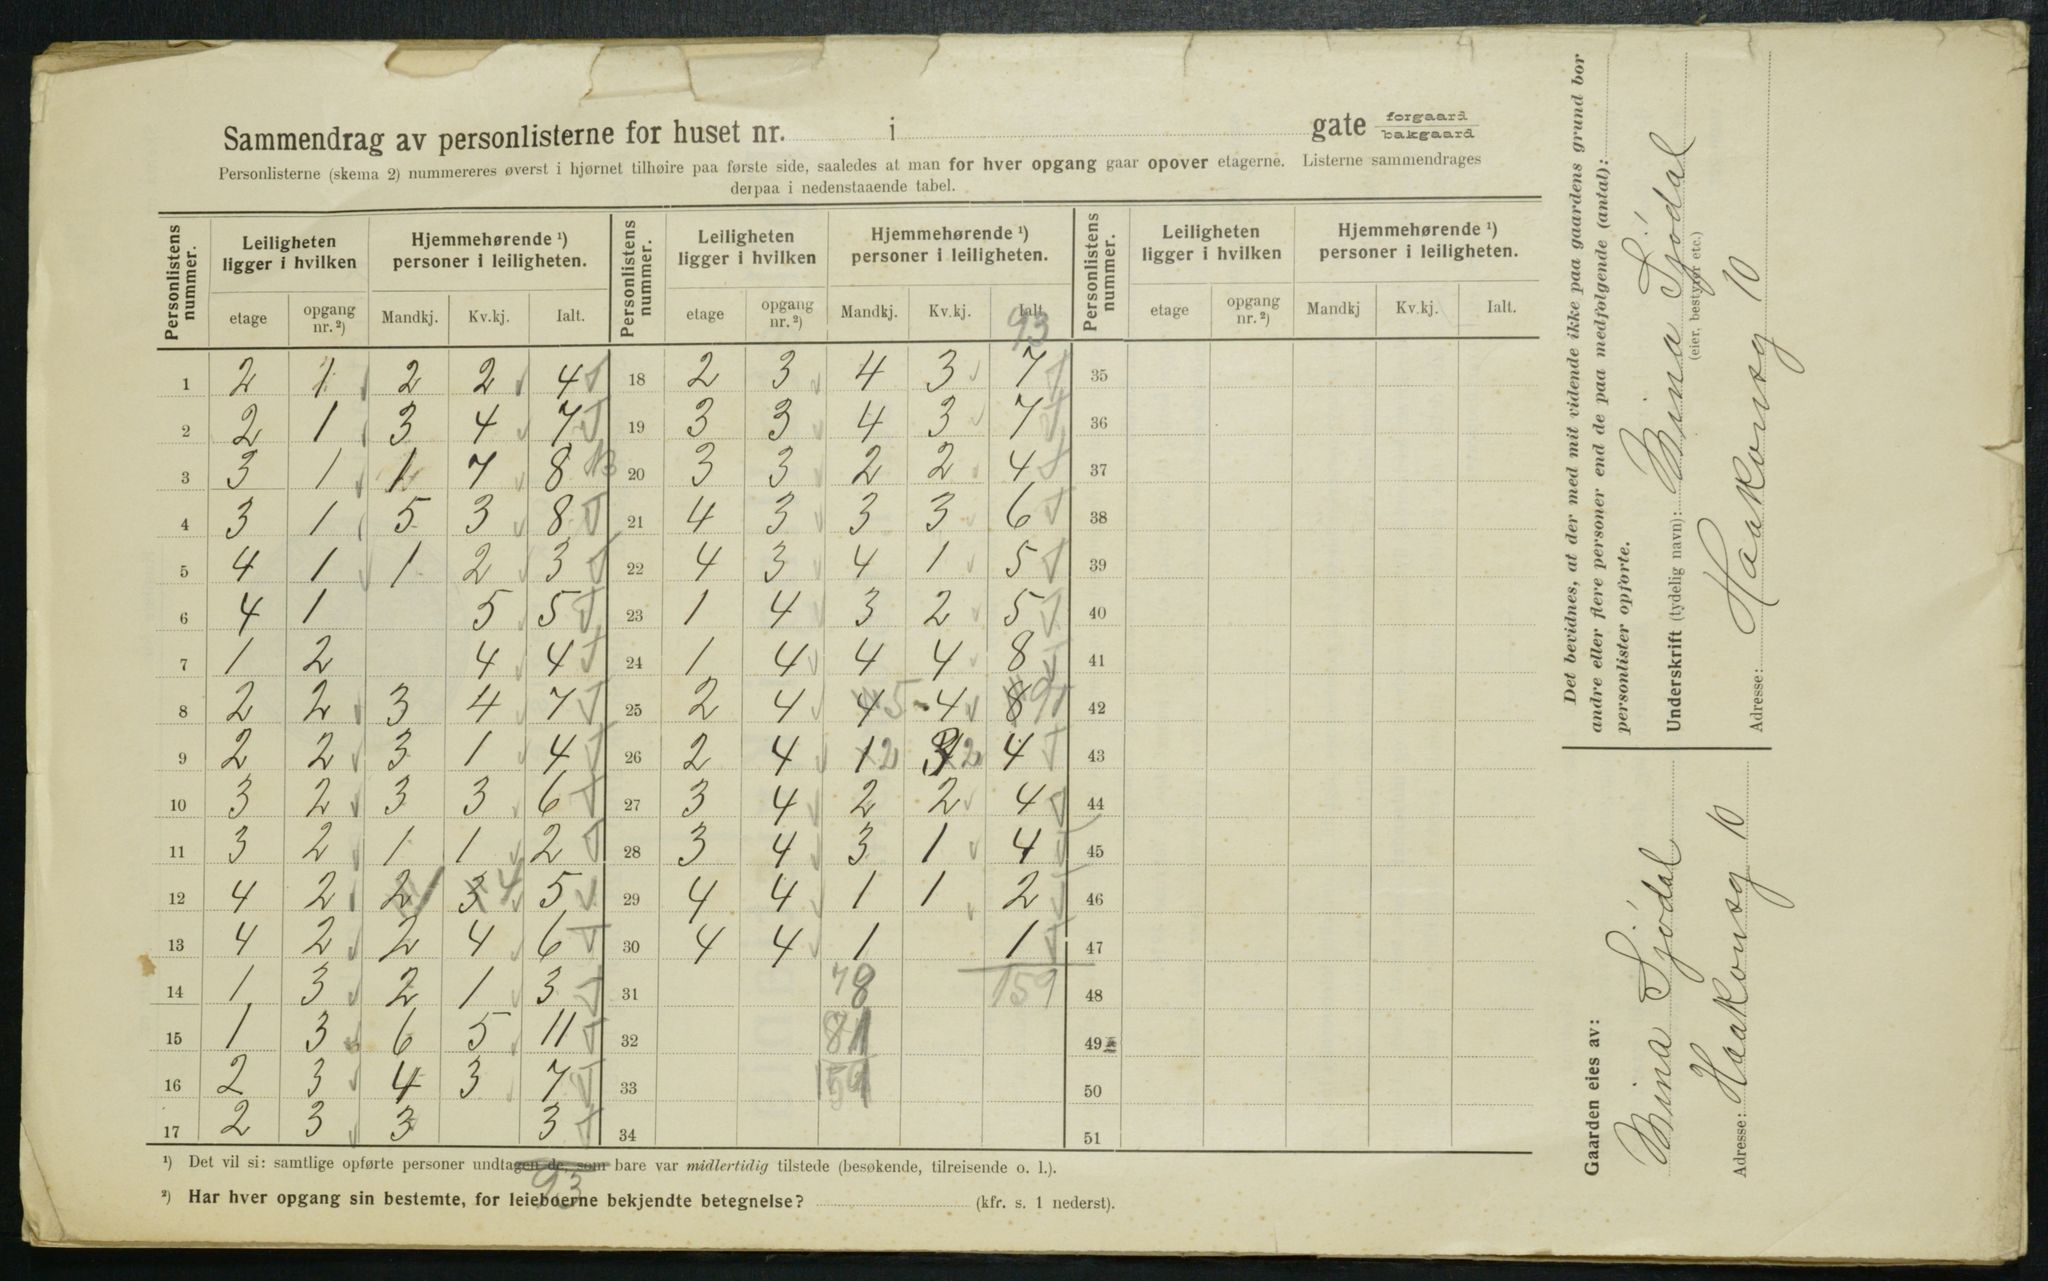 Sammendrag av personlisterne for huset nr. i gate forgaard bakgaard
Personlisterne (skema 2) nummereres øverst i hjørnet tilhøire paa første side, saaledes at man for hver opgang gaar opover etagerne. Listerne sammendrages
derpaa i nedenstaaende tabel.
Personlistens nummer. Leiligheten ligger i hvilken Hjemmehørende ¹) personer i leiligheten. Personlistens nummer. Leiligheten ligger i hvilken Hjemmehørende ¹) personer i leiligheten. Personlistens nummer. Leiligheten ligger i hvilken Hjemmehørende ¹) personer i leiligheten.
etage opgang nr. ²) Mandkj. Kv.kj. Ialt. etage opgang nr. ²) Mandkj. Kv.kj. Ialt. etage opgang nr. ²) Mandkj Kv.kj. Ialt.
93
1 2 1 2 2 4 18 2 3 4 3 7 35
2 2 1 3 4 7 19 3 3 4 3 7 36
3 3 1 1 7 8 20 3 3 2 2 4 37
4 3 1 5 3 8 21 4 3 3 3 6 38
5 4 1 1 2 3 22 4 3 4 1 5 39
6 4 1 5 5 23 1 4 3 2 5 40
7 1 2 4 4 24 1 4 4 4 8 41
8 2 2 3 4 7 25 2 4 4 5 4 8 9 42
9 2 2 3 1 4 26 2 4 1 2 3 2 4 43
10 3 2 3 3 6 27 3 4 2 2 4 44
11 3 2 1 1 2 28 3 4 3 1 4 45
12 4 2 2 1 3 4 5 29 4 4 1 1 2 46
13 4 2 2 4 6 30 4 4 1 1 47
14 1 3 2 1 3 31 78 159 48
15 1 3 6 5 11 32 81 49
16 2 3 4 3 7 33 159 50
17 2 3 3 3 34 51
¹) Det vil si: samtlige opførte personer undtagen de, som bare var midlertidig tilstede (besøkende, tilreisende o. l.).
93
²) Har hver opgang sin bestemte, for leieboerne bekjendte betegnelse? (kfr. s. 1 nederst).
Det bevidnes, at der med mit vidende ikke paa gaardens grund bor
andre eller flere personer end de paa medfølgende (antal):
personlister opførte.
Underskrift (tydelig navn): Mina Sjödal
(eier, bestyrer etc.)
Adresse: Haakonsg 10
Gaarden eies av:
Mina Sjödal
Adresse: Haakonsg 10